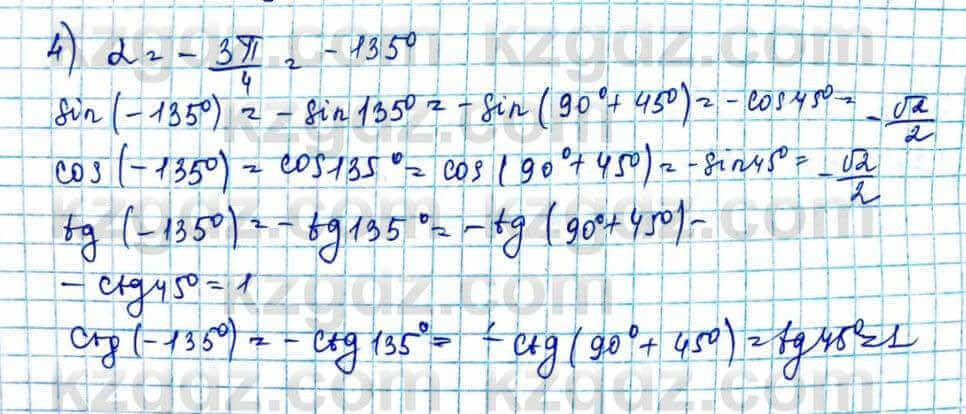 4) α = - 3π/4 = -135°
sin(-135°) = -sin135° = -sin(90°+45°) = -cos45° = -√2/2
cos(-135°) = cos135° = cos(90°+45°) = -sin45° = -√2/2
tg(-135°) = -tg135° = -tg(90°+45°) -
- ctg45° = 1
ctg(-135°) = -ctg135° = -ctg(90°+45°) = tg45° = 1
kzgdz.com
kzgdz.com
kzgdz.com
kzgdz.com
kzgdz.com